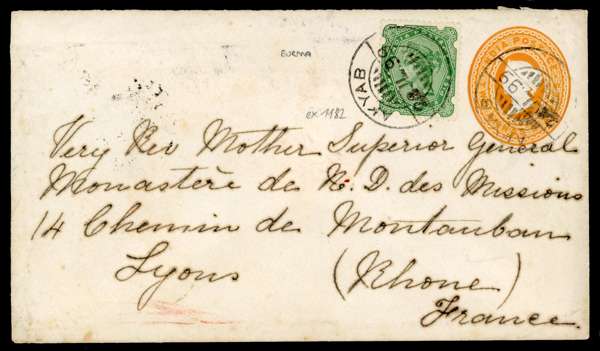 BURMA
INDIA POSTAGE
AKYAB
ex 1182
Very Rev Mother Superior General
Monastère de N. D. des Missions
14 Chemin de Montauban
Lyons (Rhone)
France.